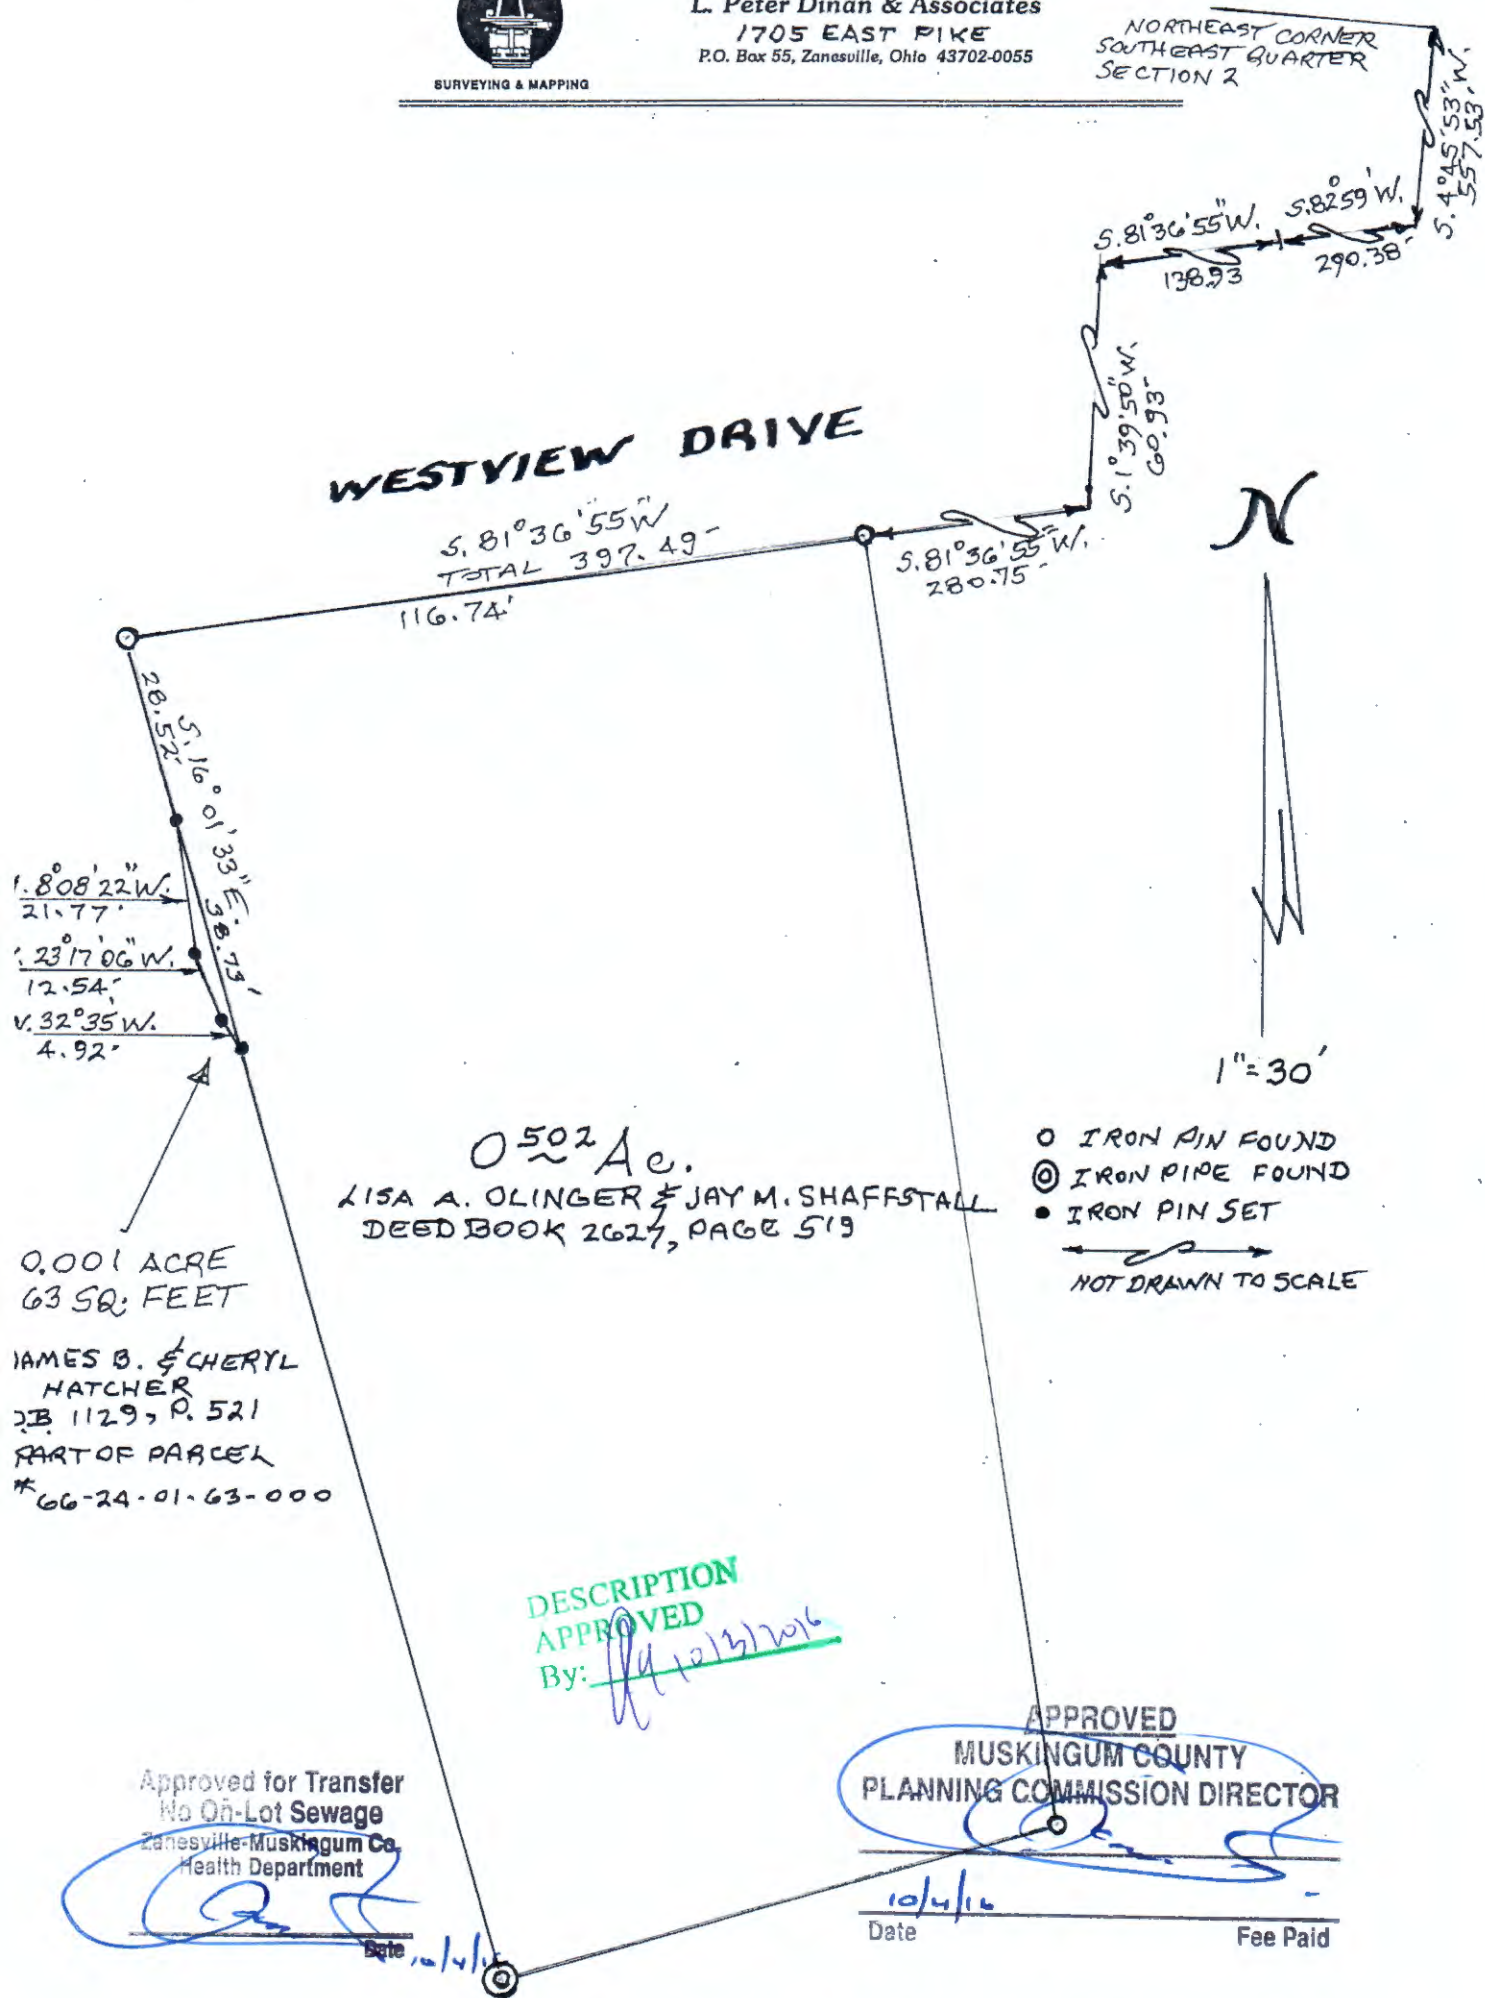 L. Peter Dinan & Associates
1705 EAST PIKE
P.O. Box 55, Zanesville, Ohio 43702-0055
SURVEYING & MAPPING
NORTHEAST CORNER
SOUTHEAST QUARTER
SECTION 2
S. 4°45'53" W.
557.53'
S.82°59' W.
290.38'
S.81°36'55" W.
138.93
S.1°39'50" W.
60.93'
WESTVIEW DRIVE
S. 81°36'55" W
TOTAL 397.49'
116.74'
S.81°36'55" W.
280.75'
N
28.52'
S. 16°01'33" E.
38.73'
. 8°08'22" W.
21.77'
. 23°17'06" W.
12.54'
. 32°35' W.
4.92'
1"=30'
0.502 Ac.
LISA A. OLINGER & JAY M. SHAFFSTALL
DEED BOOK 2627, PAGE 519
IRON PIN FOUND
IRON PIPE FOUND
IRON PIN SET
NOT DRAWN TO SCALE
0.001 ACRE
63 SQ. FEET
JAMES B. & CHERYL
HATCHER
D.B. 1129, P. 521
PART OF PARCEL
# 66-24-01-63-000
DESCRIPTION
APPROVED
By: 10/3/2016
Approved for Transfer
No On-Lot Sewage
Zanesville-Muskingum Co.
Health Department
Date 10/4/16
APPROVED
MUSKINGUM COUNTY
PLANNING COMMISSION DIRECTOR
10/4/16
Date Fee Paid